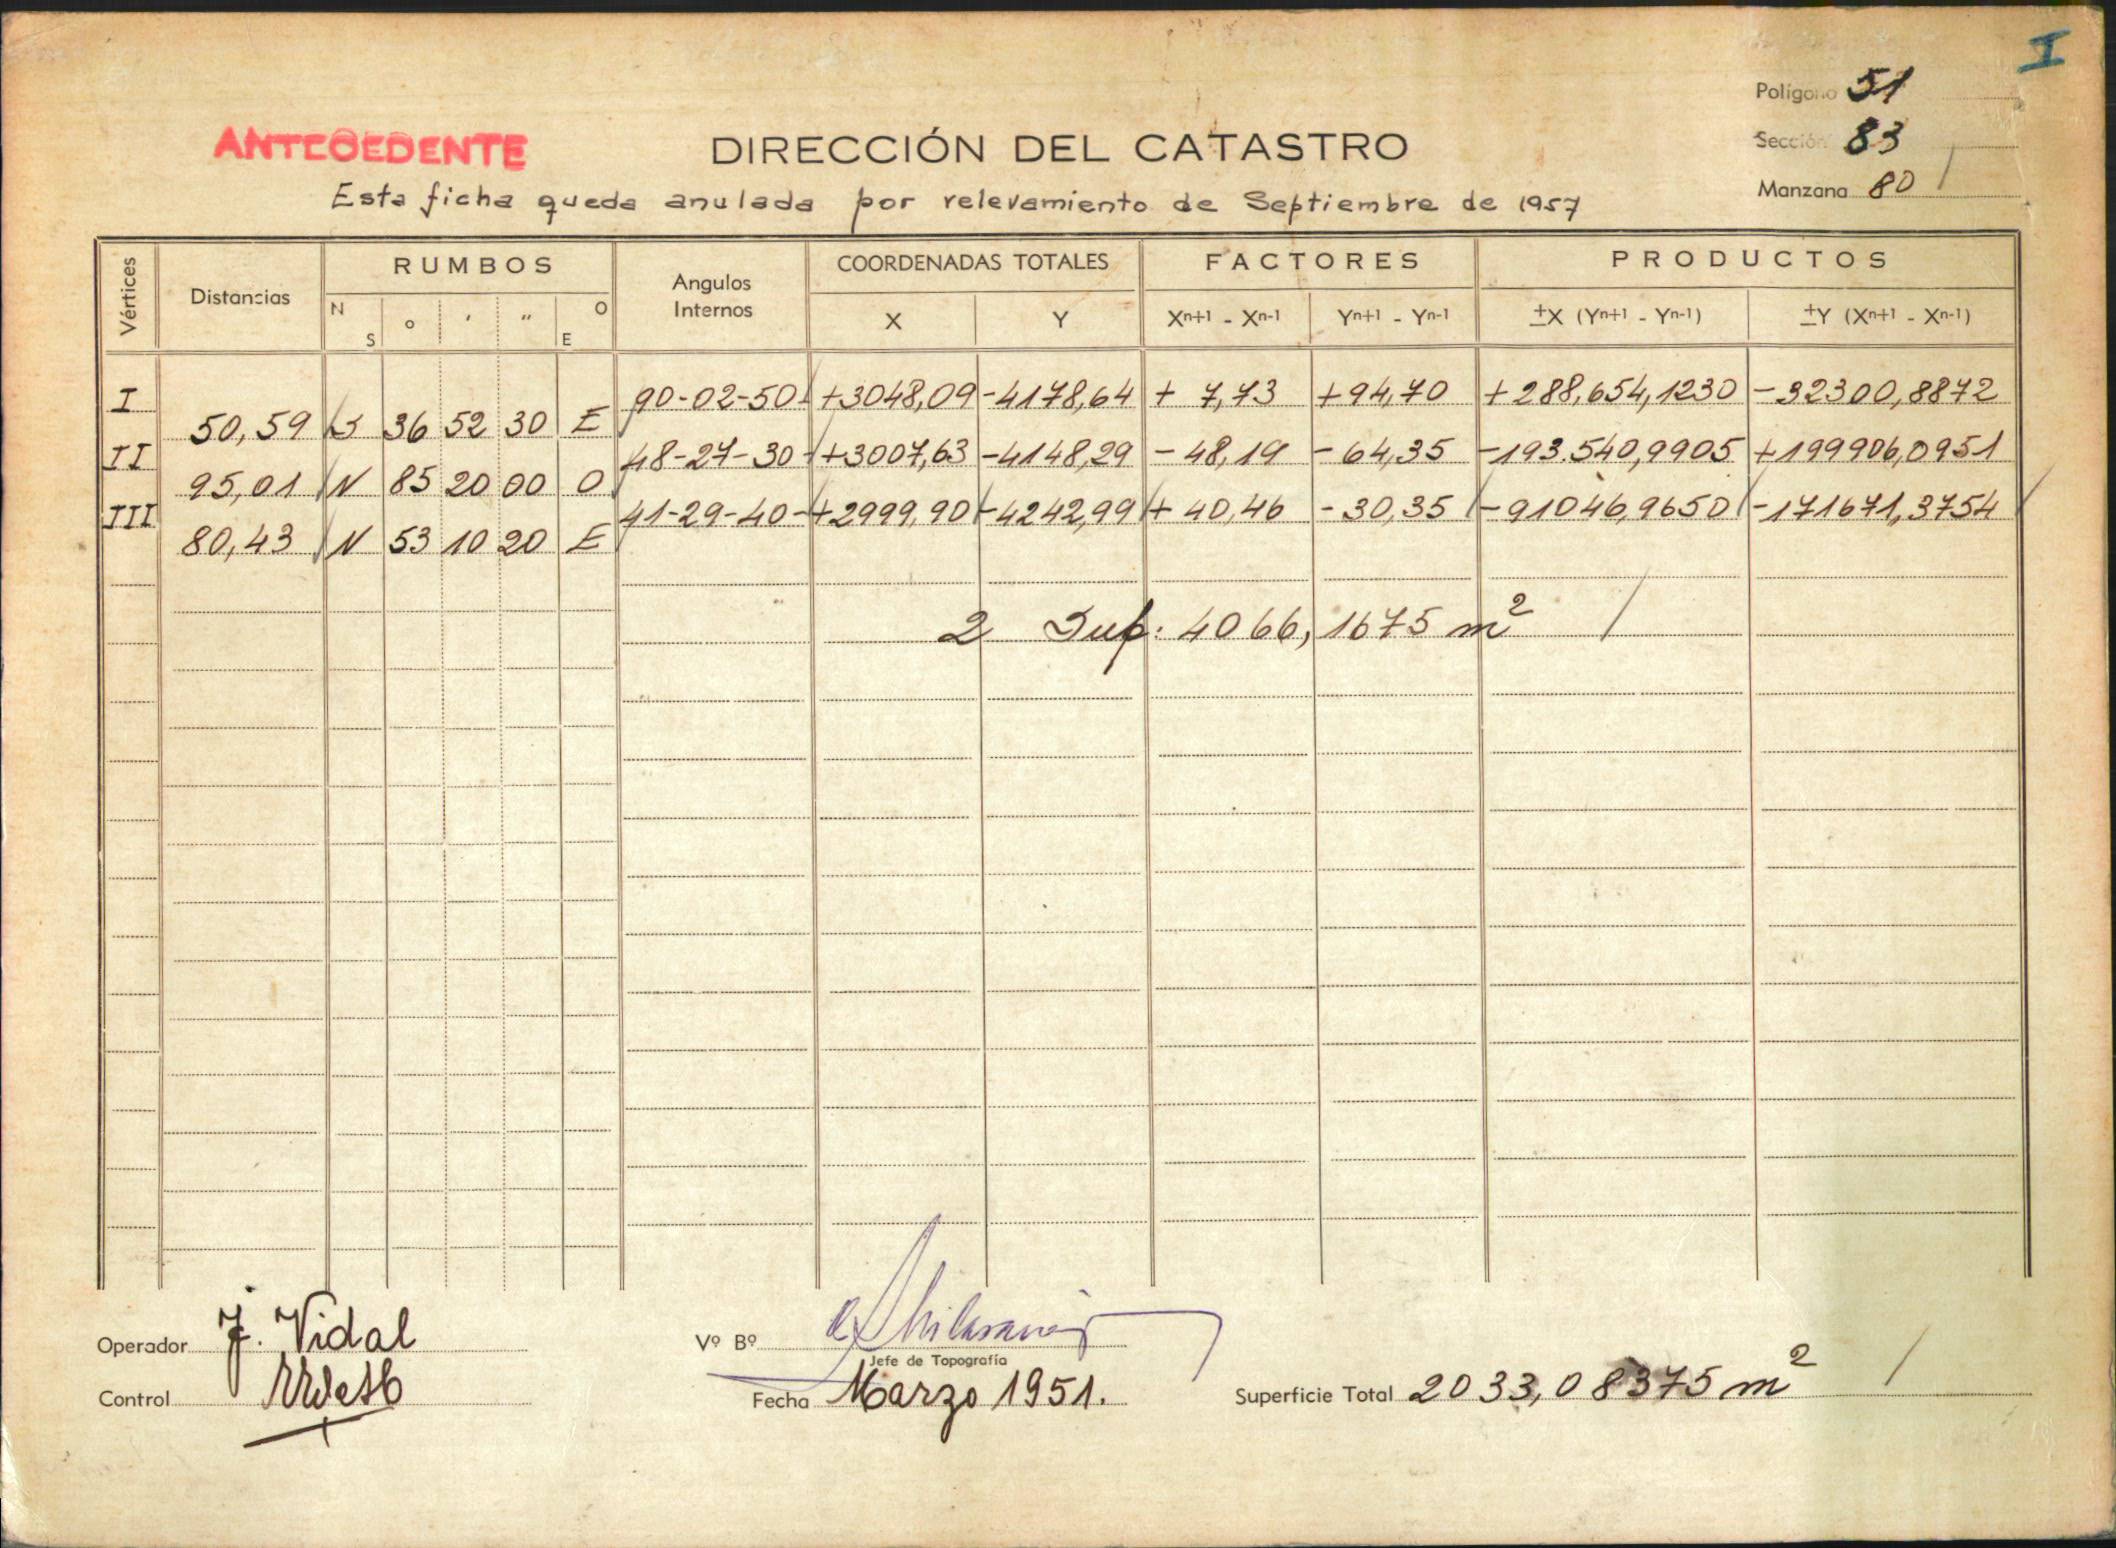 I
Polígono 51
ANTECEDENTE
DIRECCIÓN DEL CATASTRO
Sección 83
Esta ficha queda anulada por relevamiento de Septiembre de 1957
Manzana 80 /
Vértices Distancias RUMBOS Angulos Internos COORDENADAS TOTALES FACTORES PRODUCTOS
N S o ' " O E X Y Xn+1 - Xn-1 Yn+1 - Yn-1 ±X (Yn+1 - Yn-1) ±Y (Xn+1 - Xn-1)
I 90-02-50 +3048,09 -4178,64 + 7,73 +94,70 +288,654,1230 -32300,8872
50,59 S 36 52 30 E
II 48-27-30 +3007,63 -4148,29 -48,19 -64,35 -193.540,9905 +199906,0951
95,01 N 85 20 00 O
III 41-29-40 +2999,90 -4242,99 + 40,46 -30,35 -91046,9650 -171671,3754
80,43 N 53 10 20 E
2 Sup. 4066,1675 m2 /
Operador J. Vidal
Vº Bº
Jefe de Topografía
Control
Fecha Marzo 1951.
Superficie Total 2033,08375 m2 /